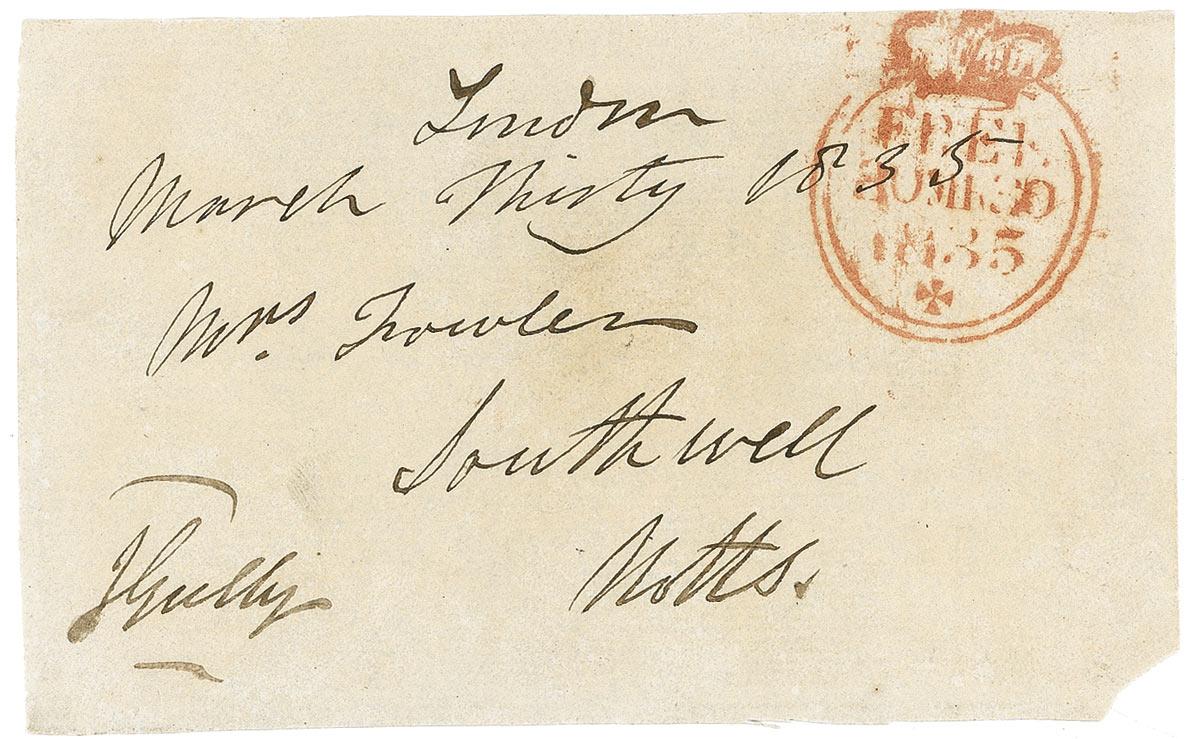 London
March Thirty 1835
Mrs. Fowler
Southwell
Notts.
JGully
FREE
30MR30
1835